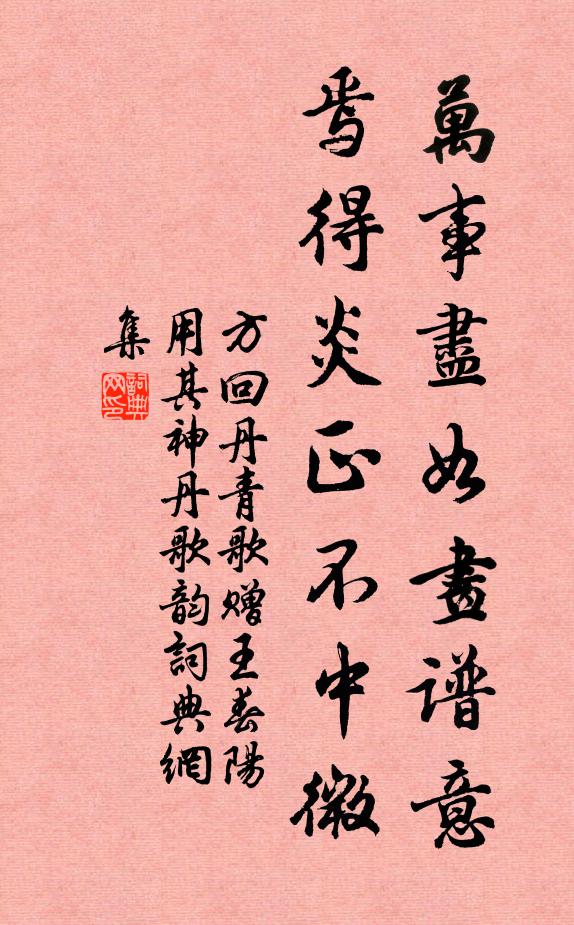 萬事盡如畫譜意
焉得炎正不中微
方回丹青歌赠王春陽
用其神丹歌韵詞典網
集
詞典网印